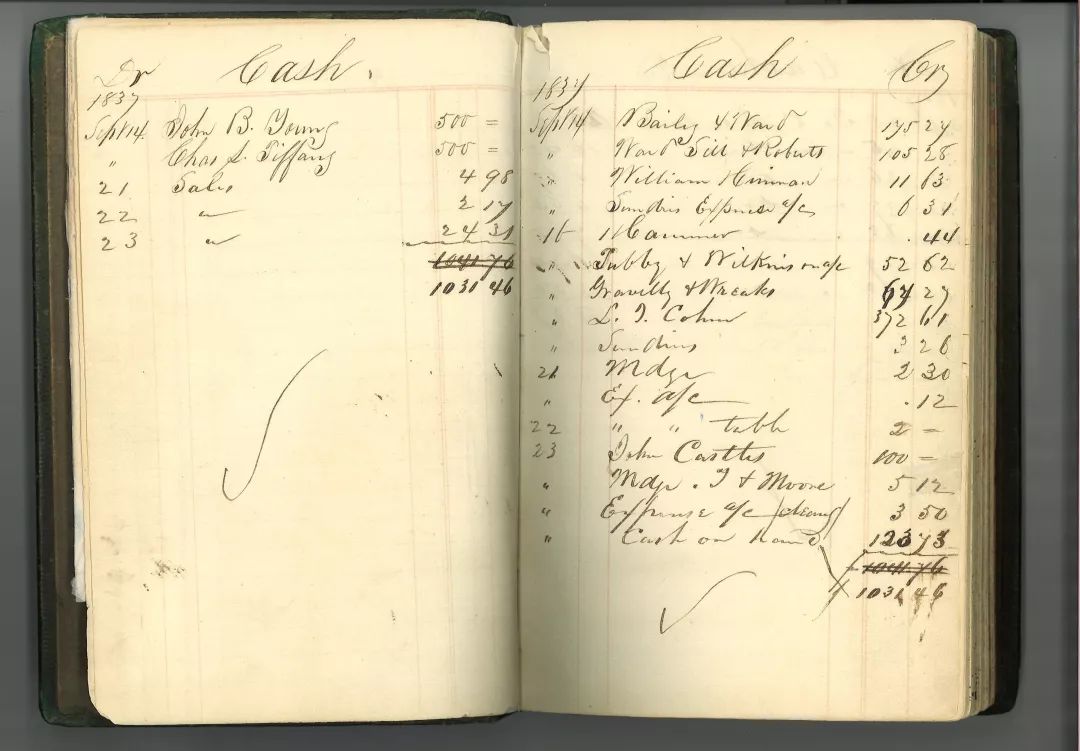 Dr Cash.
1837
Sept 14 John B. Young 500 =
" Chas L. Tiffany 500 =
21 Sales 4 98
22 " 2 17
23 " 24 31
1041 76
1031 46
Cash Cr
1837
Sept 14 Baily & Ward 175 27
" Ward Sill & Roberts 105 28
" William Hinman 11 63
" Sundries Expense a/c 6 31
16 Hammer . 44
" Tubby & Wilkins on a/c 52 62
" Gravelly & Wreaks 67 27
" L. J. Cohen 372 61
" Sundries 3 26
21 Mdze 2 30
" Ex. a/c . 12
22 " " table 2 =
23 John Castles 100 =
" Mdze . T & Moore 5 12
" Expense a/c 3 50
" Cash on hand 123 73
1041 76
1031 46